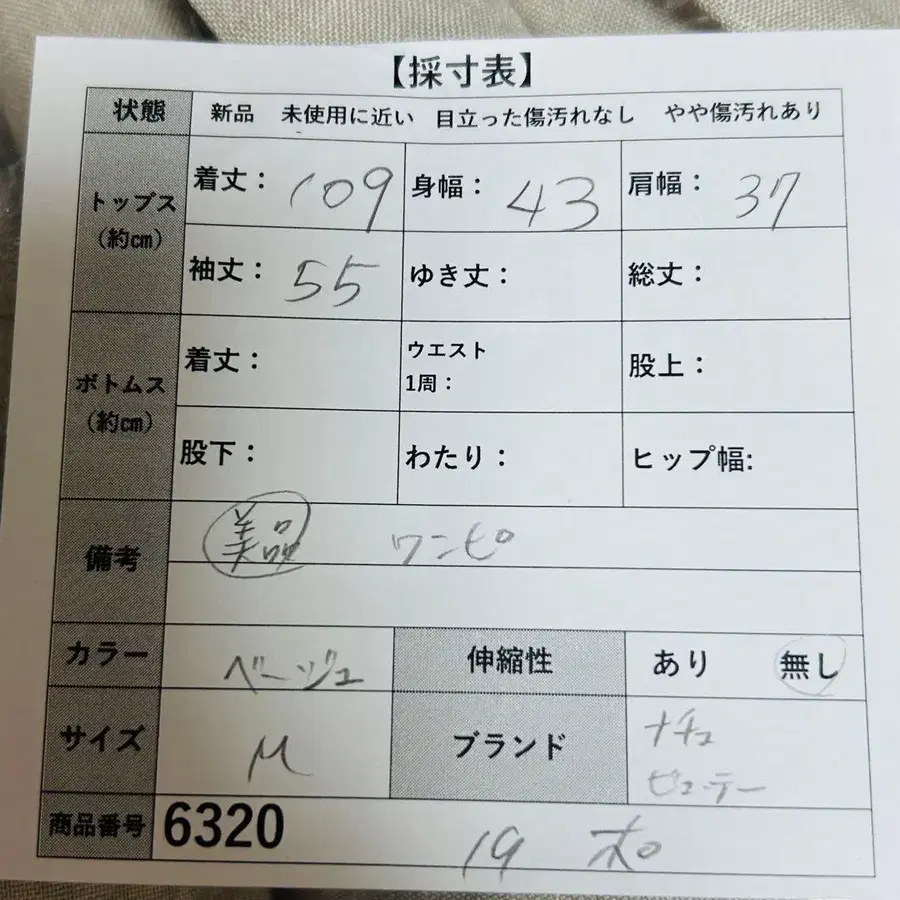 【採寸表】
状態 新品 未使用に近い 目立った傷汚れなし やや傷汚れあり
トップス（約㎝） 着丈： 109 身幅： 43 肩幅： 37
袖丈： 55 ゆき丈： 総丈：
ボトムス（約㎝） 着丈： ウエスト1周： 股上：
股下： わたり： ヒップ幅:
備考 美品 ワンピ
カラー ベージュ 伸縮性 あり 無し
サイズ M ブランド ナチュ
ビューテー
商品番号 6320 19